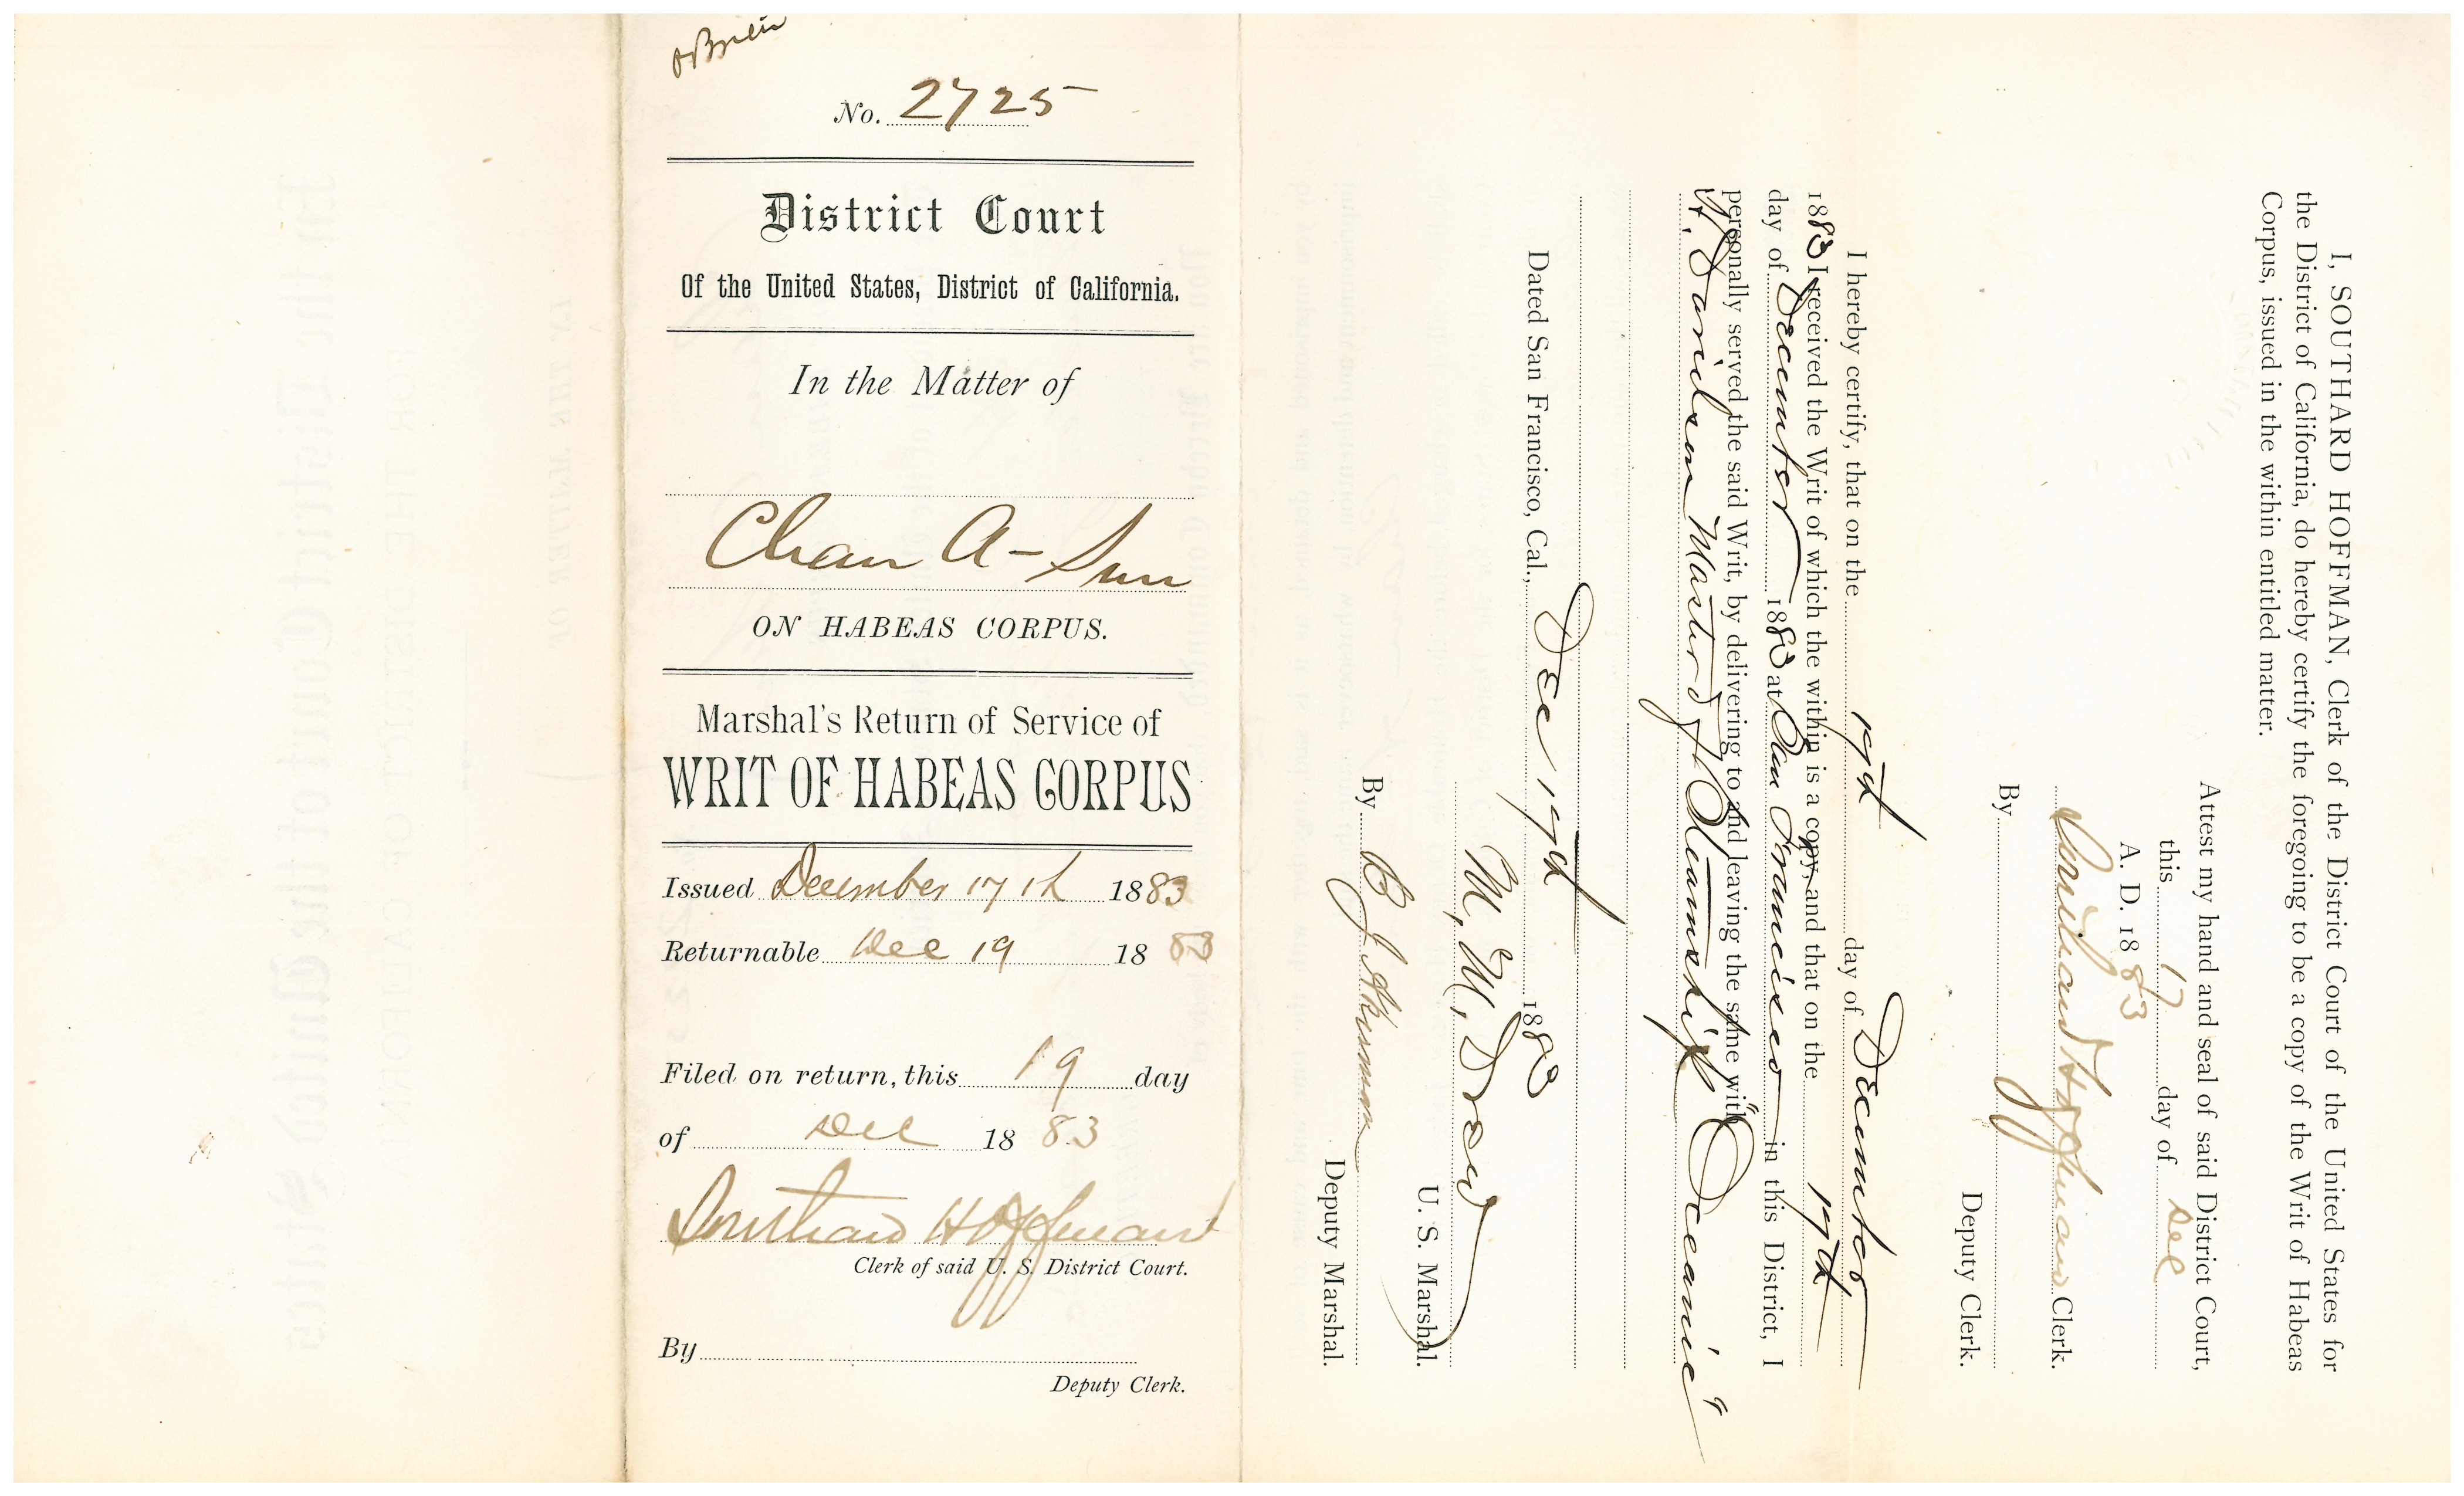 OBrien
No. 2725
District Court
Of the United States, District of California.
In the Matter of
Chan A-Sun
ON HABEAS CORPUS.
Marshal's Return of Service of
WRIT OF HABEAS CORPUS
Issued December 17th 1883
Returnable Dec 19 1883
Filed on return, this 19 day
of Dec 1883
Southard Hoffman
Clerk of said U. S. District Court.
By
Deputy Clerk.
I, SOUTHARD HOFFMAN, Clerk of the District Court of the United States for
the District of California, do hereby certify the foregoing to be a copy of the Writ of Habeas
Corpus, issued in the within entitled matter.
Attest my hand and seal of said District Court,
this 17 day of Dec
A. D. 1883
Southard Hoffman Clerk.
By
Deputy Clerk.
I hereby certify, that on the 17th day of December
1883 I received the Writ of which the within is a copy, and that on the 17th
day of December 1883 at San Francisco in this District, I
personally served the said Writ, by delivering to and leaving the same with
Master of Steamship "Oceanic"
Dated San Francisco, Cal., Dec 17th 1883
M. M. Drew
U. S. Marshal.
By B J
Deputy Marshal.